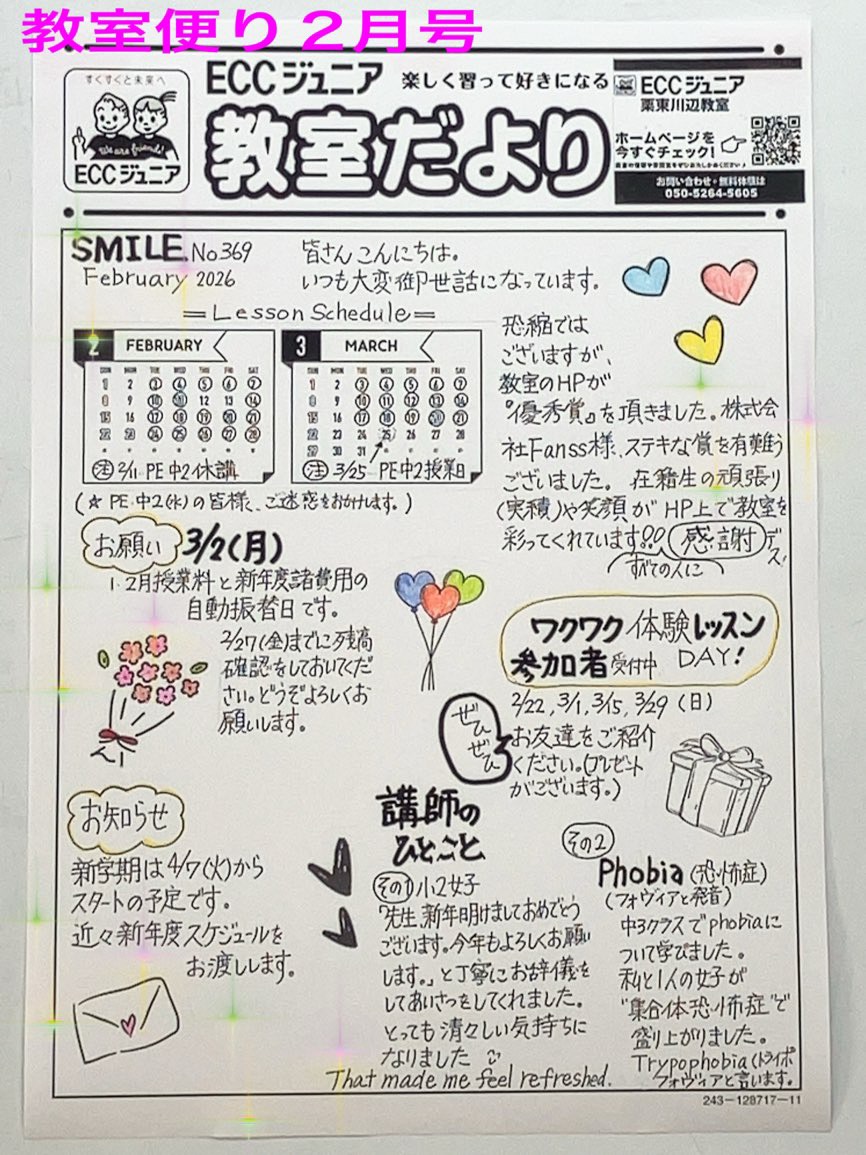 教室便り2月号
すくすくと未来へ
We are friends!
ECCジュニア
ECCジュニア 楽しく習って好きになる
教室だより
ECCジュニア
栗東川辺教室
ホームページを
今すぐチェック!
お問い合わせ・無料体験は
050-5264-5605
SMILE. No369
February 2026
皆さんこんにちは。
いつも大変御世話になっています。
=Lesson Schedule=
2 FEBRUARY
SUN MON TUE WED THU FRI SAT
1 2 3 4 5 6 7
8 9 10 11 12 13 14
15 16 17 18 19 20 21
22 23 24 25 26 27 28
注 2/11 PE中2休講
3 MARCH
SUN MON TUE WED THU FRI SAT
1 2 3 4 5 6 7
8 9 10 11 12 13 14
15 16 17 18 19 20 21
22 23 24 25 26 27 28
29 30 31
注 3/25 PE中2授業日
(☆ PE中2(水)の皆様、ご迷惑をおかけします。)
恐縮では
ございますが、
教室のHPが
『優秀賞』を頂きました。株式会
社Fanss様、ステキな賞を有難う
ございました。在籍生の頑張り
(実績)や笑顔がHP上で教室を
彩ってくれています!!感謝デス!
すべての人に
お願い 3/2(月)
1・2月授業料と新年度諸費用の
自動振替日です。
2/27(金)までに残高
確認をしておいてくだ
さい。どうぞよろしくお
願いします。
ワクワク体験レッスン
参加者受付中 DAY!
2/22, 3/1, 3/15, 3/29 (日)
ぜひぜひ
お友達をご紹介
ください。(プレゼント
がございます。)
お知らせ
新学期は4/7(火)から
スタートの予定です。
近々新年度スケジュールを
お渡しします。
講師の
ひとこと
その1 小2女子
「先生、新年明けましておめでとう
ございます。今年もよろしくお願い
します。」と丁寧にお辞儀を
してあいさつをしてくれました。
とっても清々しい気持ちに
なりました
That made me feel refreshed.
その2
Phobia (恐怖症)
(フォヴィアと発音)
中3クラスでphobiaに
ついて学びました。
私と1人の女子が
"集合体恐怖症"で
盛り上がりました。
Trypophobia (トライポ
フォヴィアと言います。
243-128717-11